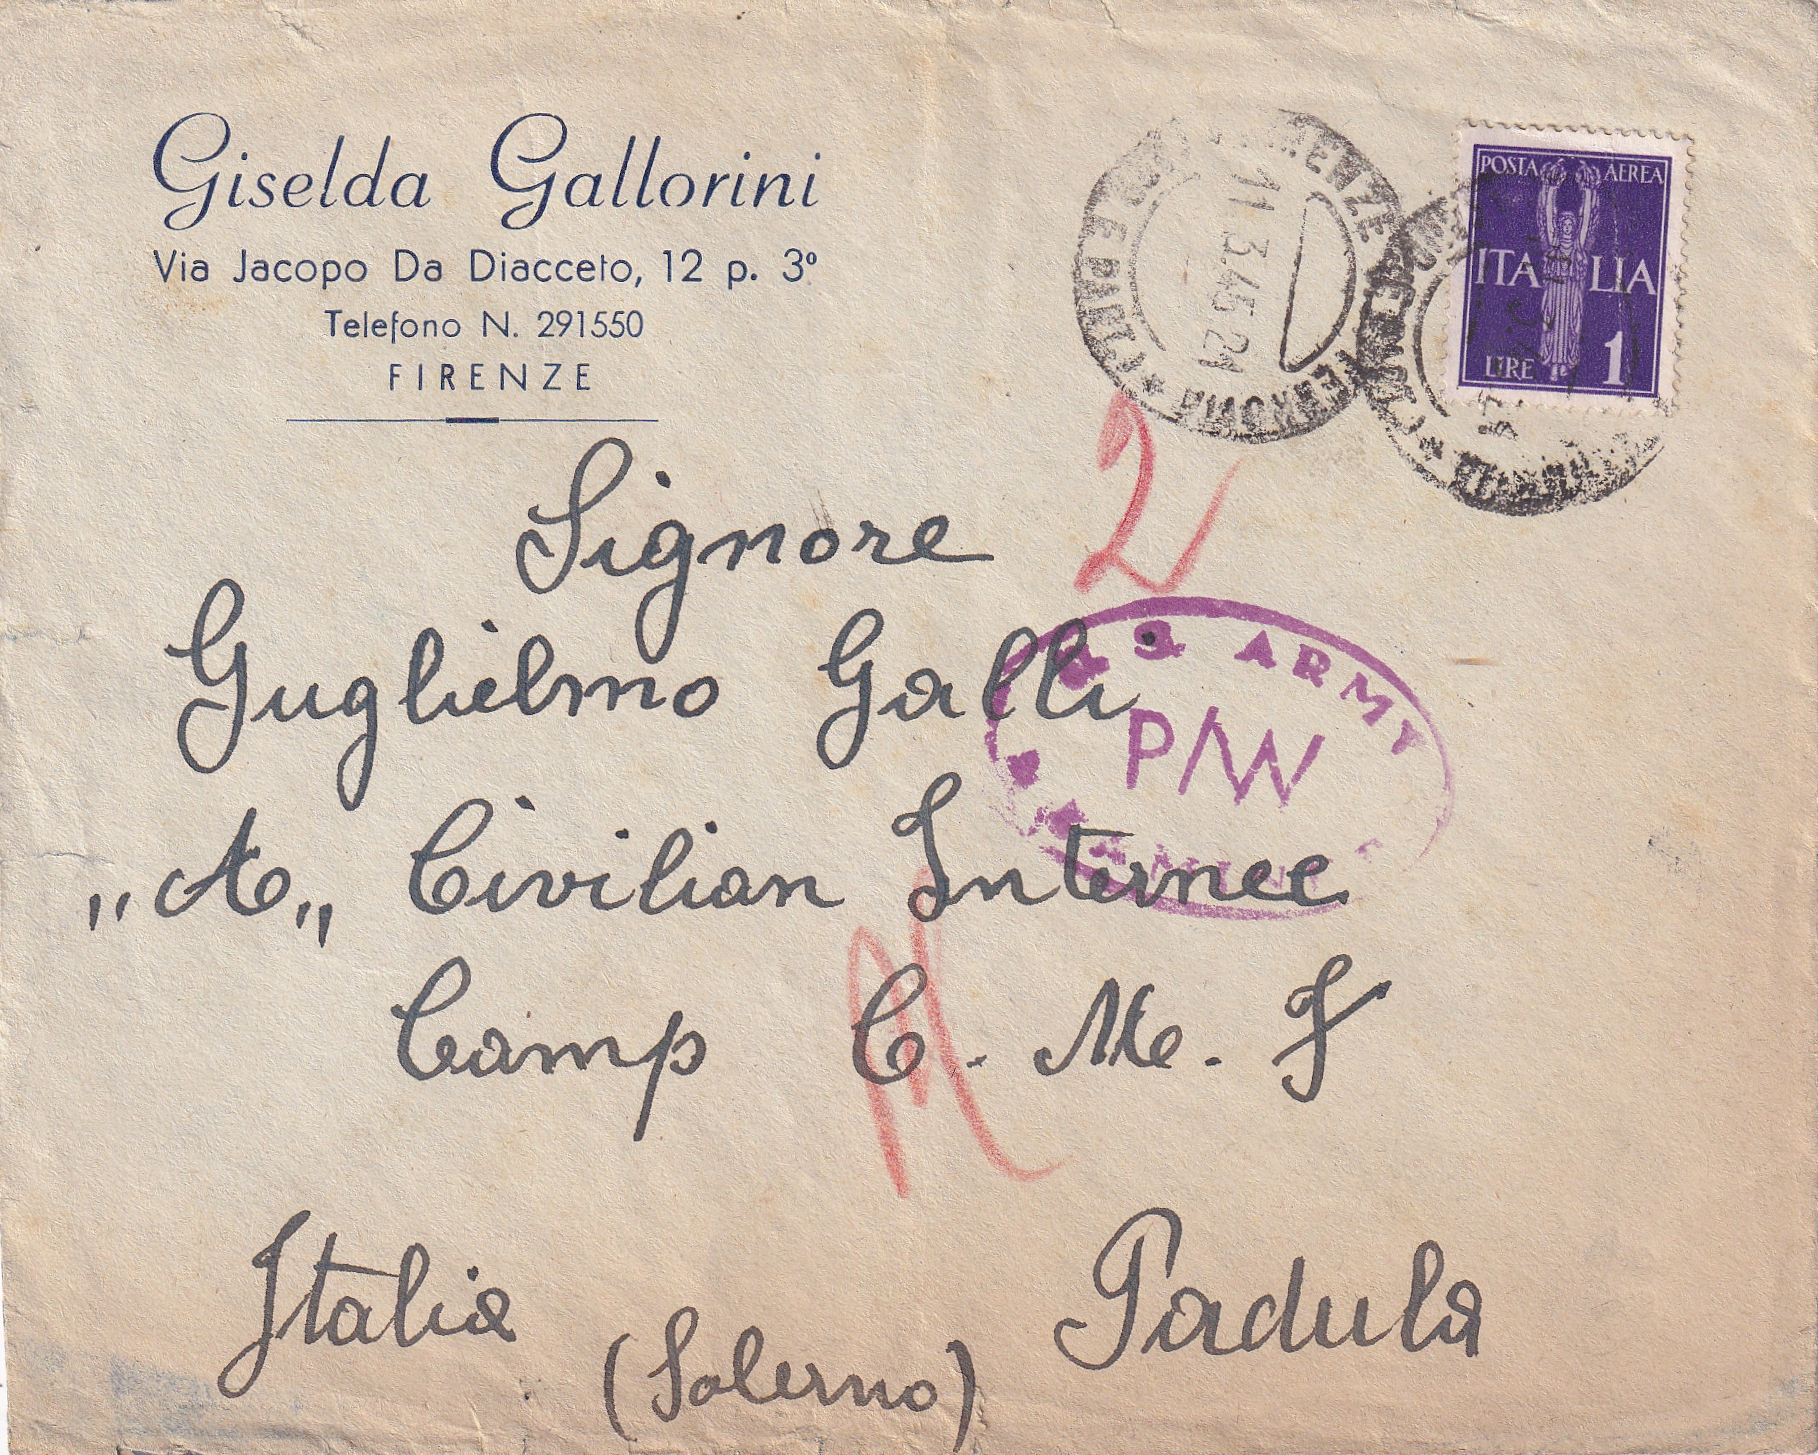 Giselda Gallorini
Via Jacopo Da Diacceto, 12 p. 3º
Telefono N. 291550
FIRENZE
FIRENZE FERROVIA
ARRIVI E PART.
11.3.45 21
POSTA AEREA
ITALIA
LIRE 1
2
Signore
Guglielmo Galli
U S ARMY
P/W
„A„ Civilian Internee
Camp C. M. F
Italia Padula
(Salerno)